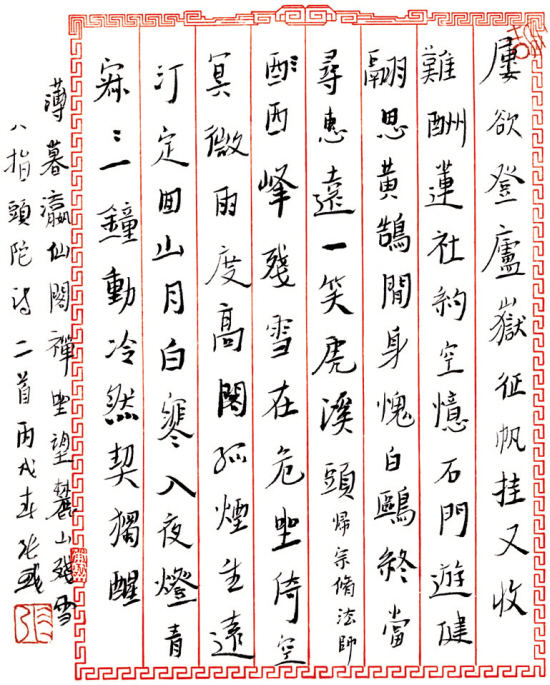 屢欲登廬嶽征帆挂又收
難酬蓮社約空憶石門遊健
翮思黃鵠閒身愧白鷗終當
尋惠遠一笑虎溪頭歸宗脩法師
西峰殘雪在危坐倚空
冥微雨度高閣孤煙生遠
汀定回山月白寒入夜燈青
寂〻一鐘動冷然契獨醒
薄暮瀛仙閣禪坐望麓山殘雪
八指頭陀詩二首丙戌春張